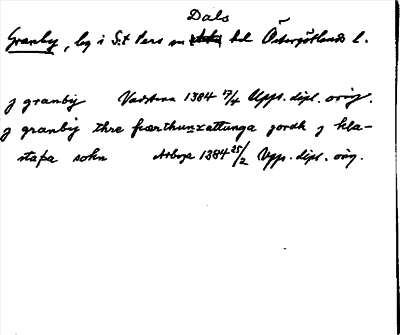 Dals
Granby, lig i S:t Pers sn hd Östergötlands l.
J granby Vadstena 1384 17/4 Upps. dipl. orig.
J granby thre fiærthunxattunga jordh J kla-
stapa sokn Arboga 1384 25/2 Upps. dipl. orig.